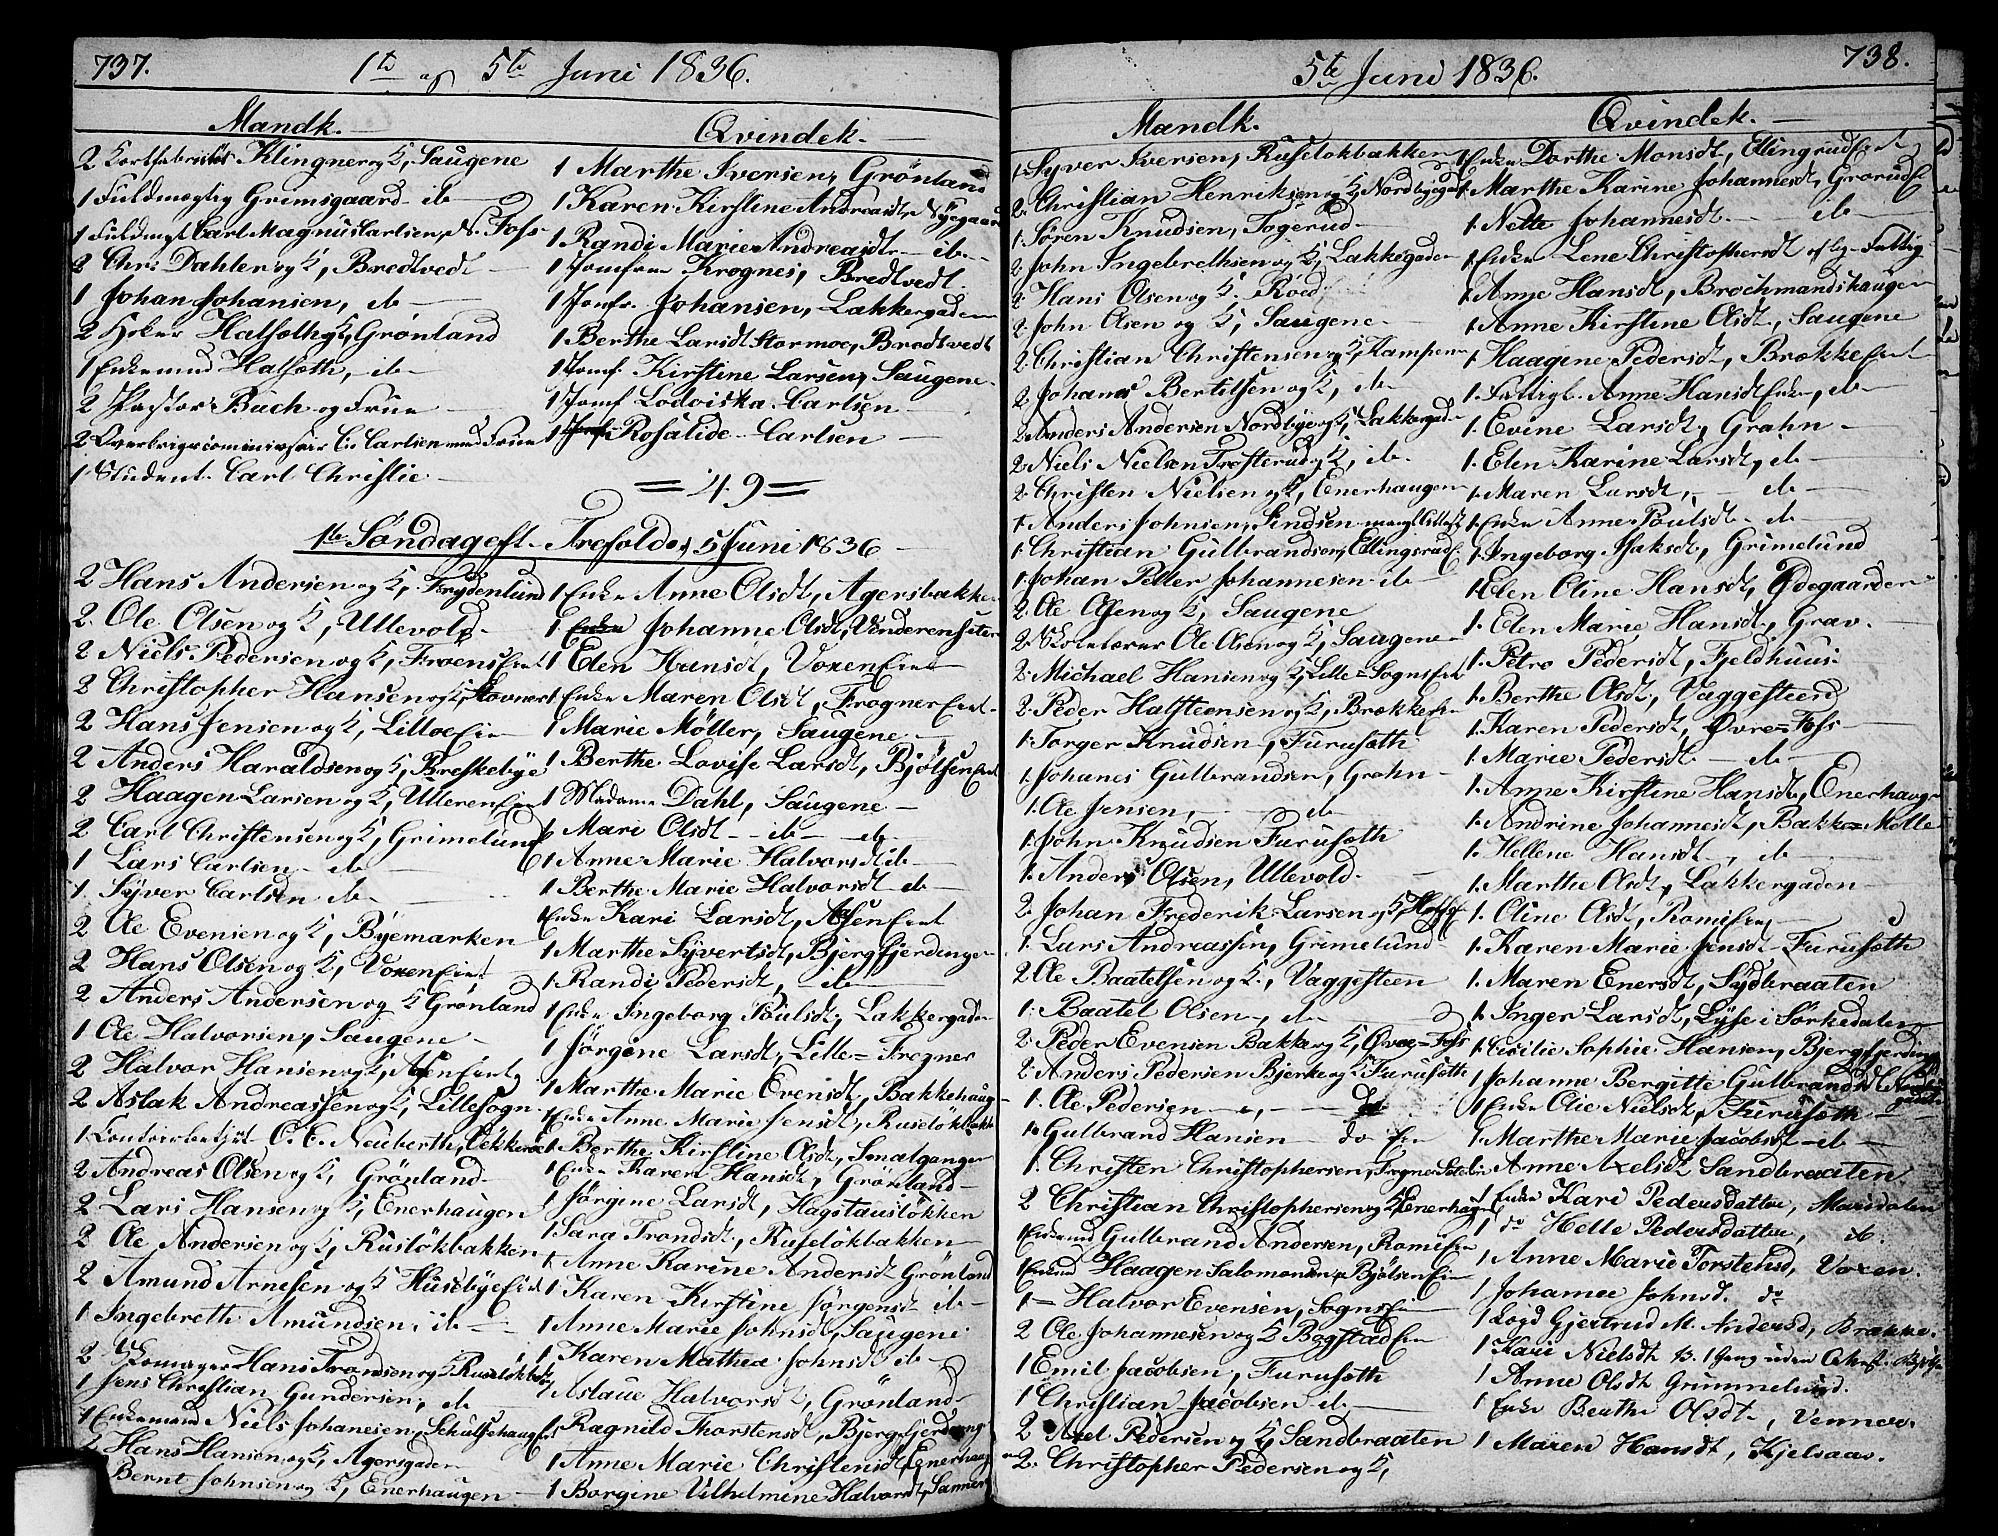 737.
1te og 5te Juni 1836.
Mandk.
2 Kortfabrikør Klingner og K, Saugene
1 Fuldmægtig Grimsgaard ib
1 Fuldmgt Carl Magnus Carlsen, N. Foss
2 Chr. Dahlen og K, Bredtvedt
1 Johan Johansen, ib
2 Høker Halseth og K, Grønland
1 Enkemand Halseth, ib
2 Pastor Buch og Frue
2 Overkrigscommissair C. Carlsen med Frue
1 Student Carl Christie
Qvindek.
1 Marthe Iversen, Grönland
1 Karen Kirstine Andreasdt, Nyegaard
1 Randi Marie Andreasdt ib
1 Jomfrue Krognes, Bredtvedt
1 Jomfr. Johansen, Lakkergaden
1 Berthe Larsdt Stormoe, Bredtvedt
1 Jomf. Kirstine Larsen, Saugene
1 Jomf Lodviska Carlsen
1 Jomf. Rosalide Carlsen
= 49 =
1te Søndag eft. Trefold: d. 5 Juni 1836
2 Hans Andersen og K, Frydenlund
2 Ole Olsen og K, Ullevold
2 Niels Pedersen og K, Frøens Eie
2 Christopher Hansen og K, Hovnert
2 Hans Jensen og K, Lilloe Eie
2 Anders Haraldsen og K, Breskebye
2 Haagen Larsen og K, Ulleren Eiet
2 Carl Christensen og K, Grimelund
1 Lars Carlsen ib
1 Syver Carlsen ib
2 Ole Evensen og K, Byemarken
2 Hans Olsen og K, Voxen Eiet
2 Anders Andersen og K Grønland
1 Ole Halvorsen, Saugene
2 Halvor Hansen og K, Aasen Eiet
2 Aslak Andreassen og K, Lillesogn
1 Contoirbetjnt C. E. Neuberth, Løkkene
2 Andreas Olsen og K, Grönland
2 Lars Hansen og K, Enerhaugen
2 Ole Andersen og K, Rusløkbakken
2 Amund Arnesen og K Husebye Eiet
1 Ingebreth Amundsen, ib
2 Skomager Hans Trondsen og K Rusløkbak
1 Jens Christian Gundersen, ib
1 Enkemand Niels Johanesen, Schultzehaugen
2 Hans Hansen og K, Agersgaden
Bernt Johnsen og K, Enerhaugen
1 Enke Anne Olsdt, Agersbakken
1 Johanne Olsdt, Vinderen Sæter
1 Elen Hansdt, Voxen Eiet
1 Enke Maren Olsdt, Frogner Eiet
1 Marie Møller, Saugene
1 Berthe Lovise Larsdt, Bjølsen Eiet
1 Madame Dahl, Saugene
1 Mari Olsdt ib ib
1 Anne Marie Halvorsdt ib
1 Berthe Marie Halvorsdt ib
1 Enke Kari Larsdt, Aasen Eiet
1 Marthe Syvertsdt, Bjergfjerdingen
1 Randi Pedersdt, ib
1 Enke Ingeborg Poulsdt, Lakkergaden
1 Jörgine Larsdt, Lille=Frogner
1 Marthe Marie Evensdt, Bakkehaug
1 Enke Anne Marie Jensdt, Ruseløkbakk
1 Berthe Kirstine Olsdt, Smalgangen
1 Enke Karen Hansdt, Grönland
1 Jörgine Larsdt, Hagstausløkken
1 Sara Trondsdt, Ruseløkbakken
1 Anne Karine Andersdt Grönland
1 Karen Kirstine Jörgensdt ib
1 Anne Marie Johnsdt, Saugene
1 Karen Mathea Johnsdt ib
1 Aslaue Halvorsdt, Grønland
1 Ragnild Thorstensdt, Bjergfjerding
1 Anne Marie Christensdt, Enerhaug
1 Borgine Vilhelmine Halvorsdt, Sannere
5te Juni 1836.
738.
Mandk.
1. Syver Iversen, Ruseløkbakken
2. Christian Henriksen og K, Nordbygad
1. Søren Knudsen, Togerud
2. John Ingebrethsen og K, Lakkegaden
2. Hans Olsen og K. Røed
2. John Olsen og K, Saugene
2. Christian Christensen og K, Kampen
2. Johanes Bertelsen og K, ib
2. Anders Andersen Nordbye og K, Lakkergad
2. Niels Nielsen Trosterud og K, ib.
2. Christen Nielsen og K, Enerhaugen
1. Anders Johnsen, Sindsen
1. Christian Gulbrandsen, Ellingsrud
1. Johan Petter Johannesen ib
2. Ole Olsen og K, Saugene
2. Skolelærer Ole Olsen og K, Saugene
2. Michael Hansen og K, Lille=Sogns Eie
2. Peder Halsteensen og K, Brække Eie
1. Torger Knudsen, Furuseth
1. Johanes Gulbrandsen, Grahn
1. Ole Jensen, ib
1. John Knudsen Furuseth
1. Anders Olsen, Ullevold.
2. Johan Frederik Larsen og K,
1. Lars Andreassen, Grimelund
2. Ole Baatelsen og K., Vaggesteen
1. Baatel Olsen, ib
2. Peder Evensen Bakke og K, Øvre=Foss
2. Anders Pedersen Bjerke og K Furuseth
1. Ole Pedersen
1. Gulbrand Hansen do Eie
1. Christen Christophersen, Frogner
2 Christian Christophersen og K Enerhaugen
1 Enkemd Gulbrand Andersen, Romis Eie
1 Enkemd Haagen Salomonsen, Bjølsen Eie
1 = Halvor Evensen, Sogns Eie
2 Ole Johannesen og K Bogstad Eie
1 Emil Jacobsen, Furuseth
1 Christian Jacobsen ib
2 Axel Pedersen og K, Sandbraaten
2. Christopher Pedersen og K,
Qvindek.
1. Enke Dorthe Monsdt, Ellingrud Eiet
1. Marthe Karine Johannesdt, Grorud E
1. Nette Johannesdt ib
1. Enke Lene Christophersdt Fattig
1. Anne Hansdt, Brochmandshaugen
1. Anne Kirstine Olsdt, Saugene
1. Haagine Pedersdt, Brække Eiet
1. Fattigl. Anne Hansdt Enke, ib
1. Evine Larsdt, Grahn
1. Elen Karine Larsdt, ib
1. Maren Larsdt, ib
1. Enke Anne Poulsdt ib
1. Ingeborg Isaksdt, Grimelund
1. Elen Oline Hansdt, Ødegaarden
1. Elen Marie Hansdt, Grav.
1. Petro Pedersdt, Fjeldhuus.
1. Berthe Olsdt, Vaggesteen
1. Karen Pedersdt, Øvre=Foss
1. Marie Pedersdt ib
1. Anne Kirstine Hansdt, Enerhaug
1. Andrine Johannesdt, Bakke=Mølle
1. Hellene Hansdt, ib
1. Marthe Olsdt, Lakkergaden
1. Oline Olsdt, Romis Eie
1. Karen Marie Jensdt Furuseth
1. Maren Enersdt, Sydbraaten
1. Inger Larsdt, Lyse i Sørkedalen
1. Cecilie Sophie Hansen, Bjergfjerding
1 Johanne Bergitte Gulbrandsdt
1 Enke Olie Nielsdt, Furuseth
1. Marthe Marie Jacobsdt ib
1. Anne Axelsdt Sandbraaten
1 Enke Kari Pedersdatter, Maridalen
1 do Helle Pedersdatter, ib.
1 Anne Marie Torstensd, Voxen.
1 Johanne Johnsd. do
1 Logd Gjertrud M. Andersd, Brække.
1 Kari Nielsdt 1 Gang uden
1 Anne Olsdt Grimmelund.
1 Enke Berthe Olsdt,
1 Maren Hansdt, Kjelsaas.